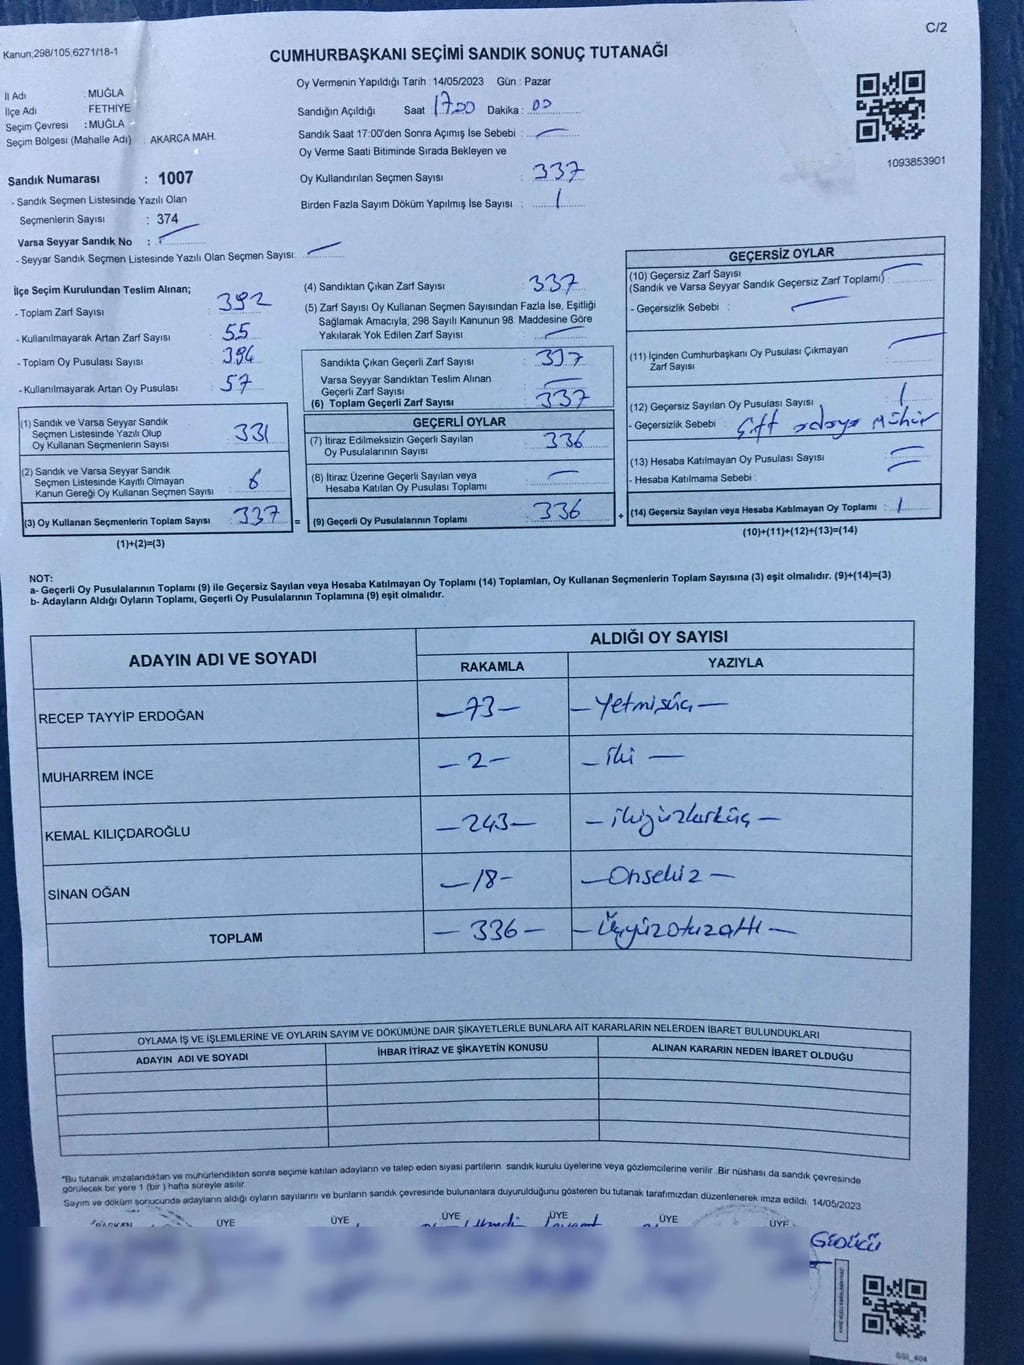 C/2
Kanun;298/105,6271/18-1
CUMHURBAŞKANI SEÇİMİ SANDIK SONUÇ TUTANAĞI
İl Adı : MUĞLA
İlçe Adı FETHİYE
Seçim Çevresi : MUĞLA
Seçim Bölgesi (Mahalle Adı) : AKARCA MAH.
Sandık Numarası : 1007
- Sandık Seçmen Listesinde Yazılı Olan
Seçmenlerin Sayısı : 374
Varsa Seyyar Sandık No :
- Seyyar Sandık Seçmen Listesinde Yazılı Olan Seçmen Sayısı
Oy Vermenin Yapıldığı Tarih : 14/05/2023 Gün : Pazar
Sandığın Açıldığı Saat 17.00 Dakika : 00
Sandık Saat 17:00'den Sonra Açımış İse Sebebi :
Oy Verme Saati Bitiminde Sırada Bekleyen ve
Oy Kullandırılan Seçmen Sayısı : 337
Birden Fazla Sayım Döküm Yapılmış İse Sayısı : 1
1093853901
İlçe Seçim Kurulundan Teslim Alınan;
- Toplam Zarf Sayısı : 392
- Kullanılmayarak Artan Zarf Sayısı : 55
- Toplam Oy Pusulası Sayısı : 394
- Kullanılmayarak Artan Oy Pusulası : 57
(1) Sandık ve Varsa Seyyar Sandık
Seçmen Listesinde Yazılı Olup
Oy Kullanan Seçmenlerin Sayısı : 331
(2) Sandık ve Varsa Seyyar Sandık
Seçmen Listesinde Kayıtlı Olmayan
Kanun Gereği Oy Kullanan Seçmen Sayısı : 6
(3) Oy Kullanan Seçmenlerin Toplam Sayısı : 337 =
(1)+(2)=(3)
(4) Sandıktan Çıkan Zarf Sayısı : 337
(5) Zarf Sayısı Oy Kullanan Seçmen Sayısından Fazla İse, Eşitliği
Sağlamak Amacıyla, 298 Sayılı Kanunun 98. Maddesine Göre
Yakılarak Yok Edilen Zarf Sayısı :
Sandıkta Çıkan Geçerli Zarf Sayısı : 337
Varsa Seyyar Sandıktan Teslim Alınan
Geçerli Zarf Sayısı :
(6) Toplam Geçerli Zarf Sayısı : 337
GEÇERLİ OYLAR
(7) İtiraz Edilmeksizin Geçerli Sayılan
Oy Pusulalarının Sayısı : 336
(8) İtiraz Üzerine Geçerli Sayılan veya
Hesaba Katılan Oy Pusulası Toplamı :
(9) Geçerli Oy Pusulalarının Toplamı : 336 +
GEÇERSİZ OYLAR
(10) Geçersiz Zarf Sayısı
(Sandık ve Varsa Seyyar Sandık Geçersiz Zarf Toplamı)
- Geçersizlik Sebebi :
(11) İçinden Cumhurbaşkanı Oy Pusulası Çıkmayan
Zarf Sayısı
(12) Geçersiz Sayılan Oy Pusulası Sayısı : 1
- Geçersizlik Sebebi : Çift adaya Mühür
(13) Hesaba Katılmayan Oy Pusulası Sayısı :
- Hesaba Katılmama Sebebi :
(14) Geçersiz Sayılan veya Hesaba Katılmayan Oy Toplamı : 1
(10)+(11)+(12)+(13)=(14)
NOT:
a- Geçerli Oy Pusulalarının Toplamı (9) ile Geçersiz Sayılan veya Hesaba Katılmayan Oy Toplamı (14) Toplamları, Oy Kullanan Seçmenlerin Toplam Sayısına (3) eşit olmalıdır. (9)+(14)=(3)
b- Adayların Aldığı Oyların Toplamı, Geçerli Oy Pusulalarının Toplamına (9) eşit olmalıdır.
ADAYIN ADI VE SOYADI ALDIĞI OY SAYISI
RAKAMLA YAZIYLA
RECEP TAYYİP ERDOĞAN –73– –Yetmişüç–
MUHARREM İNCE –2– –iki–
KEMAL KILIÇDAROĞLU –243– –ikiyüzkırküç–
SİNAN OĞAN –18– –Onsekiz–
TOPLAM –336– –Üçyüzotuzaltı–
OYLAMA İŞ VE İŞLEMLERİNE VE OYLARIN SAYIM VE DÖKÜMÜNE DAİR ŞİKAYETLERLE BUNLARA AİT KARARLARIN NELERDEN İBARET BULUNDUKLARI
ADAYIN ADI VE SOYADI İHBAR İTİRAZ VE ŞİKAYETİN KONUSU ALINAN KARARIN NEDEN İBARET OLDUĞU
"Bu tutanak imzalandıktan ve mühürlendikten sonra seçime katılan adayların ve talep eden siyasi partilerin sandık kurulu üyelerine veya gözlemcilerine verilir .Bir nüshası da sandık çevresinde
görülecek bir yere 1 (bir ) hafta süreyle asılır.
Sayım ve döküm sonucunda adayların aldığı oyların sayılarını ve bunların sandık çevresinde bulunanlara duyurulduğunu gösteren bu tutanak tarafımızdan düzenlenerek imza edildi. 14/05/2023
BAŞKAN ÜYE ÜYE ÜYE ÜYE ÜYE ÜYE